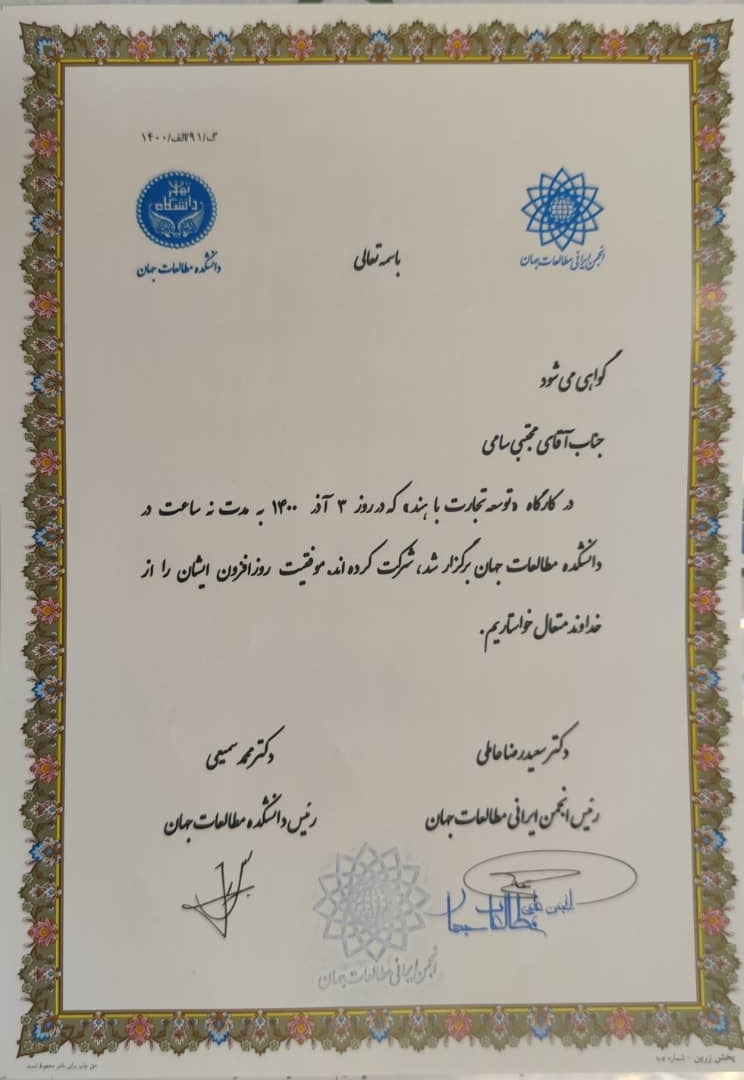 گ/۹۱/الف/۱۴۰۰
دانشگاه تهران
انجمن ایرانی مطالعات جهان
باسمه تعالی
دانشکده مطالعات جهان
گواهی می شود
جناب آقای مجتبی سامی
در کارگاه «توسعه تجارت با هند» که در روز ۳ آذر ۱۴۰۰ به مدت نه ساعت در
دانشکده مطالعات جهان برگزار شد، شرکت کرده اند. موفقیت روزافزون ایشان را از
خداوند متعال خواستاریم.
دکتر سعیدرضا عاملی
دکتر محمد سمیعی
رئیس انجمن ایرانی مطالعات جهان
رئیس دانشکده مطالعات جهان
انجمن علمی
مطالعات جهان
انجمن ایرانی مطالعات جهان
پخش زرین - شماره
حق چاپ برای ناشر محفوظ است